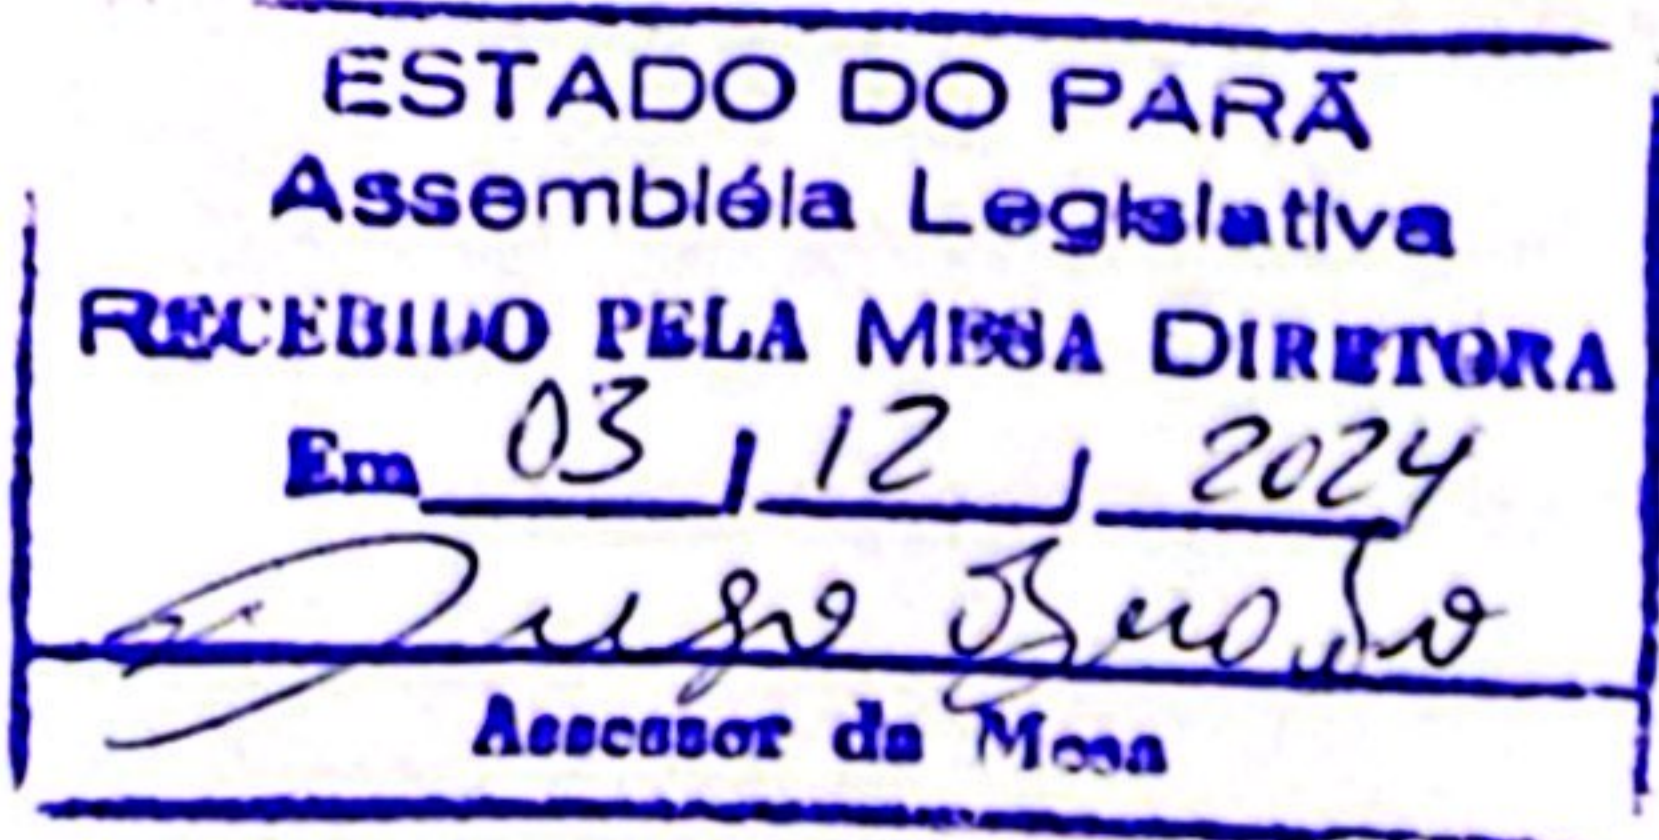 ESTADO DO PARÁ
Assembléia Legislativa
RECEBIDO PELA MESA DIRETORA
Em 03 / 12 / 2024
Assessor da Mesa